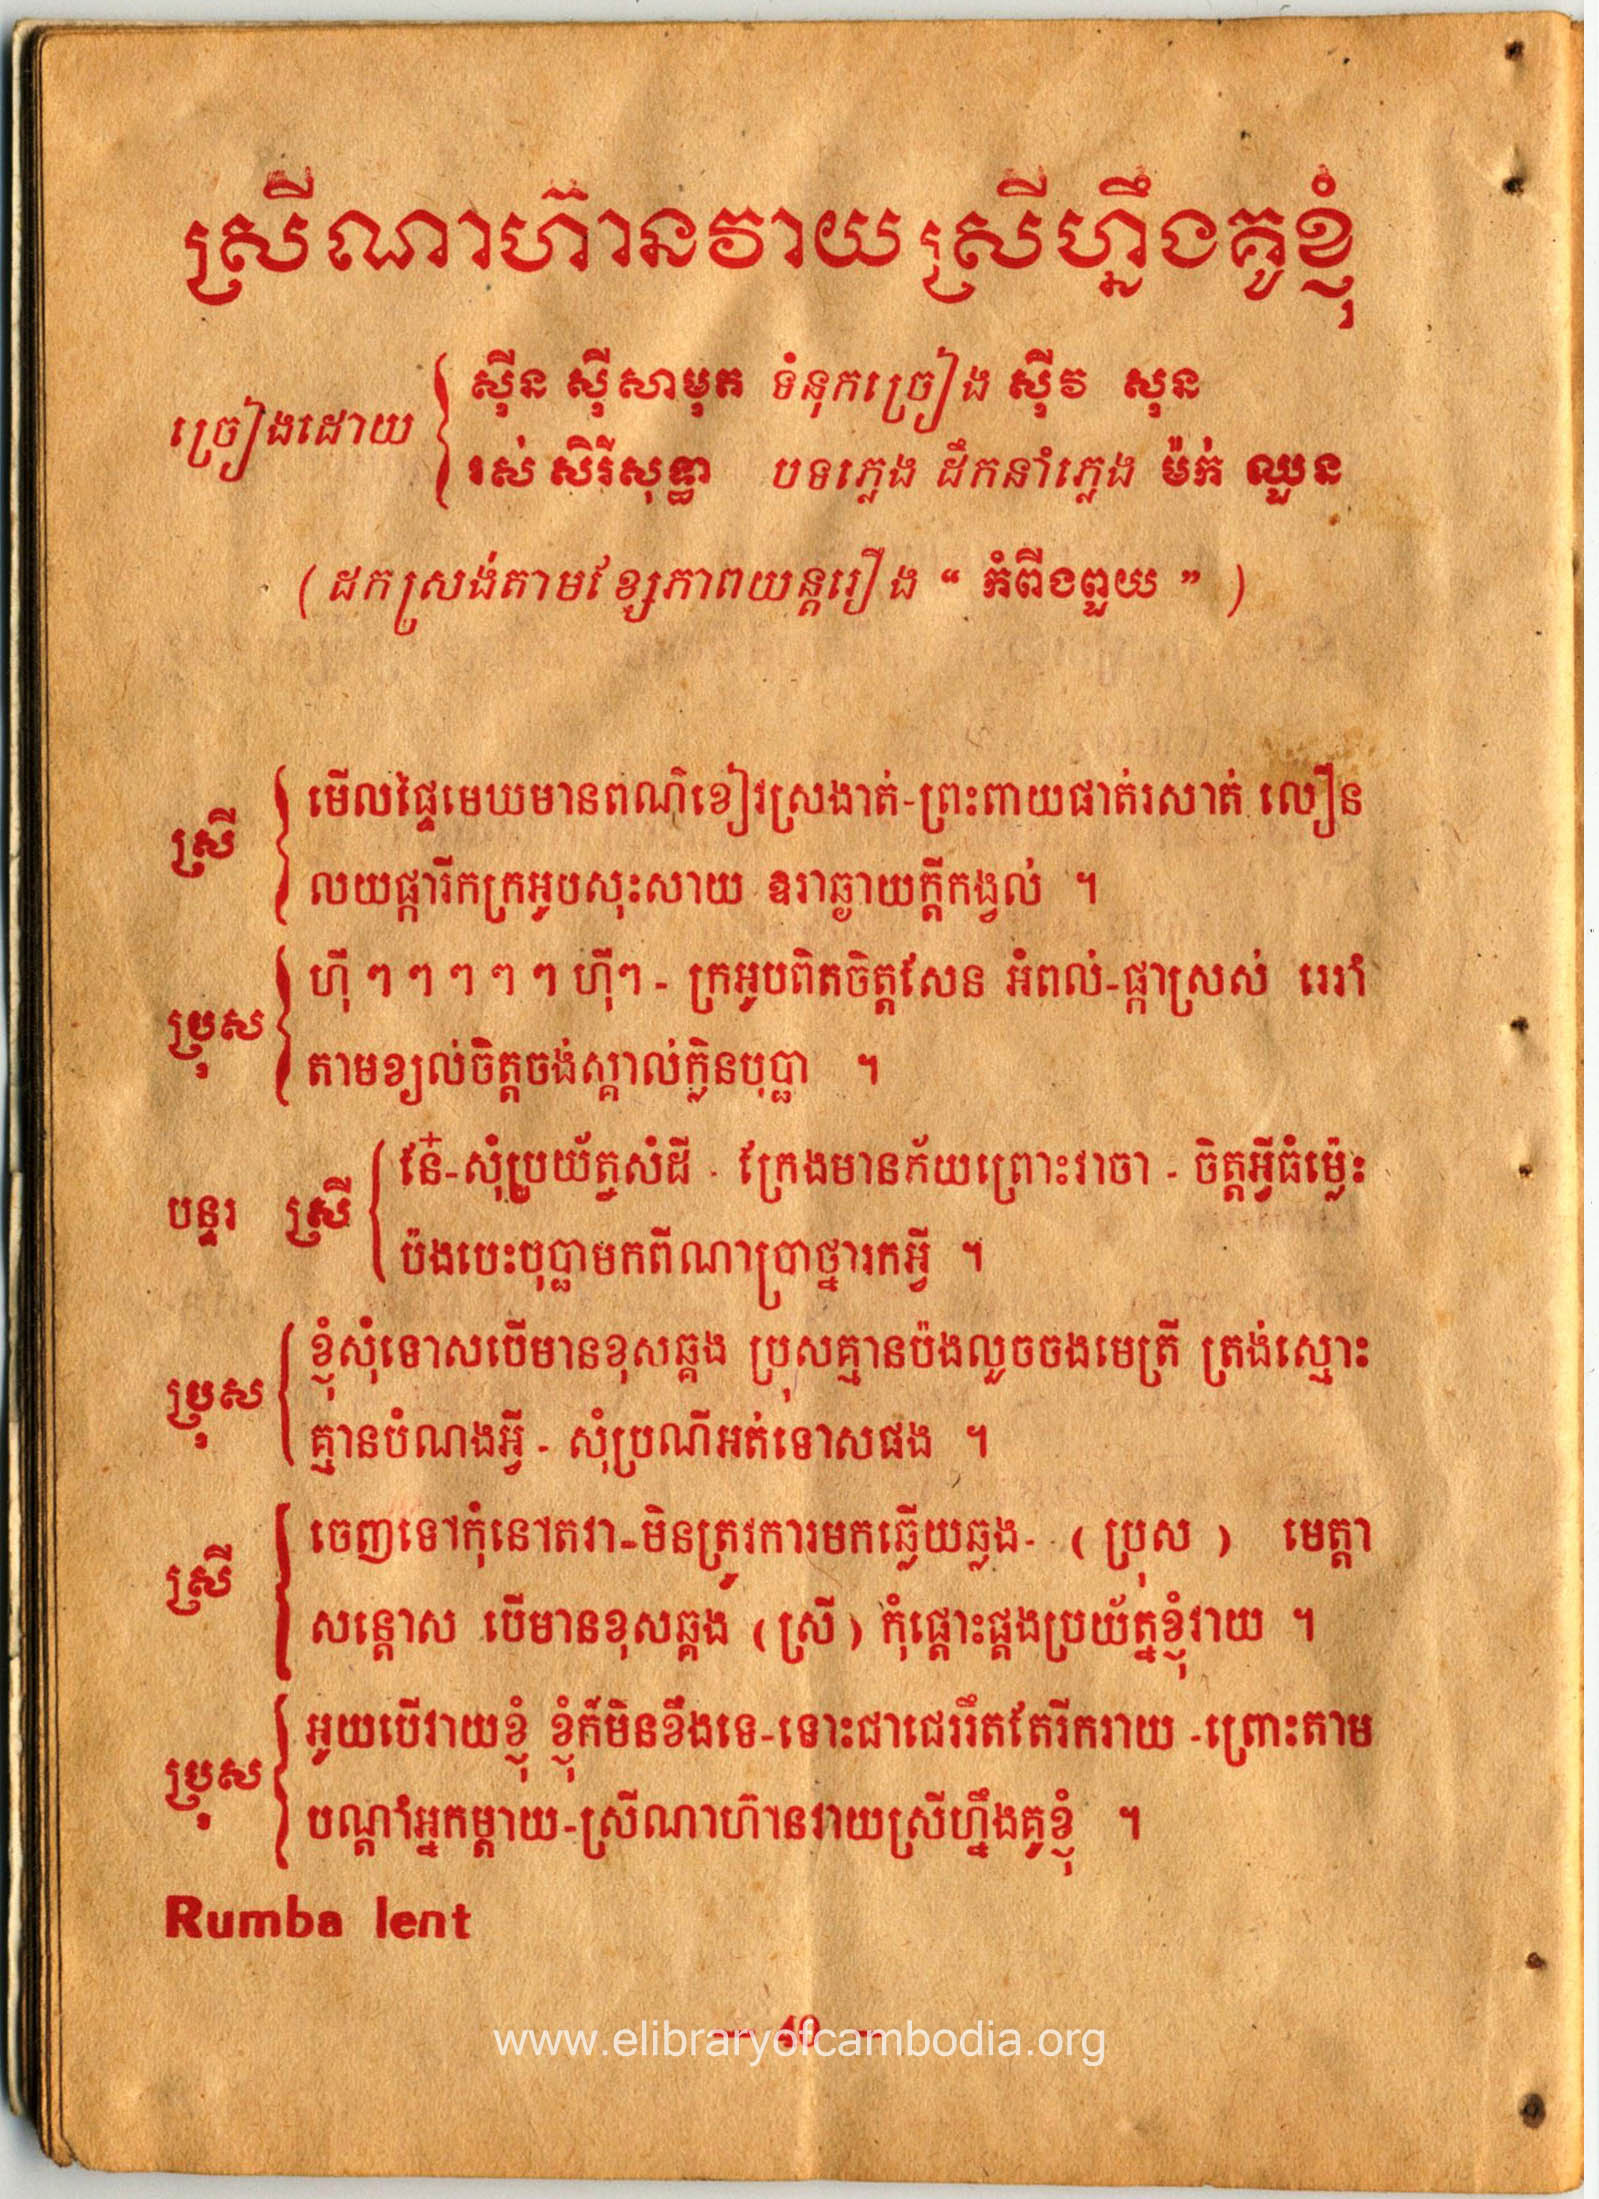 ស្រីណាហ៊ានវាយស្រីហ្នឹងគូខ្ញុំ
ច្រៀងដោយ
ស៊ីន ស៊ីសាមុត ទំនុកច្រៀង ស៊ីវ សុន
រស់ សិរីសុទ្ធា បទភ្លេង ដឹកនាំភ្លេង ម៉ក់ ឈួន
( ដកស្រង់តាមខ្សែភាពយន្តរឿង “ អំពីងពួយ ” )
ស្រី
មើលផ្ទៃមេឃមានពណ៌ខៀវស្រងាត់-ព្រះពាយផាត់រសាត់ លឿន
លយផ្ការីកក្រអូបសុះសាយ ឧរាឆ្ងាយក្តីកង្វល់ ។
ប្រុស
ហ៊ី ៗ ៗ ៗ ៗ ៗ ហ៊ីៗ - ក្រអូបពិតចិត្តសែន អំពល់-ផ្កាស្រស់ រេរាំ
តាមខ្យល់ចិត្តចង់ស្គាល់ក្លិនបុប្ផា ។
បន្ទរ ស្រី
នែ៎-សុំប្រយ័ត្នសំដី - ក្រែងមានភ័យព្រោះវាចា - ចិត្តអ្វីធំម្ល៉េះ
ប៉ងបេះបុប្ផាមកពីណាប្រាថ្នារកអ្វី ។
ប្រុស
ខ្ញុំសុំទោសបើមានខុសឆ្គង ប្រុសគ្មានប៉ងលួចចងមេត្រី ត្រង់ស្មោះ
គ្មានបំណងអ្វី - សុំប្រណីអត់ទោសផង ។
ស្រី
ចេញទៅកុំនៅតវា-មិនត្រូវការមកឆ្លើយឆ្លង- ( ប្រុស ) មេត្តា
សន្តោស បើមានខុសឆ្គង ( ស្រី ) កុំផ្តោះផ្តងប្រយ័ត្នខ្ញុំវាយ ។
ប្រុស
អូយបើវាយខ្ញុំ ខ្ញុំក៏មិនខឹងទេ-ទោះជាជេររឹតតែរីករាយ -ព្រោះតាម
បណ្តាំអ្នកម្តាយ-ស្រីណាហ៊ានវាយស្រីហ្នឹងគូខ្ញុំ ។
Rumba lent
— 40 —
www.elibraryofcambodia.org